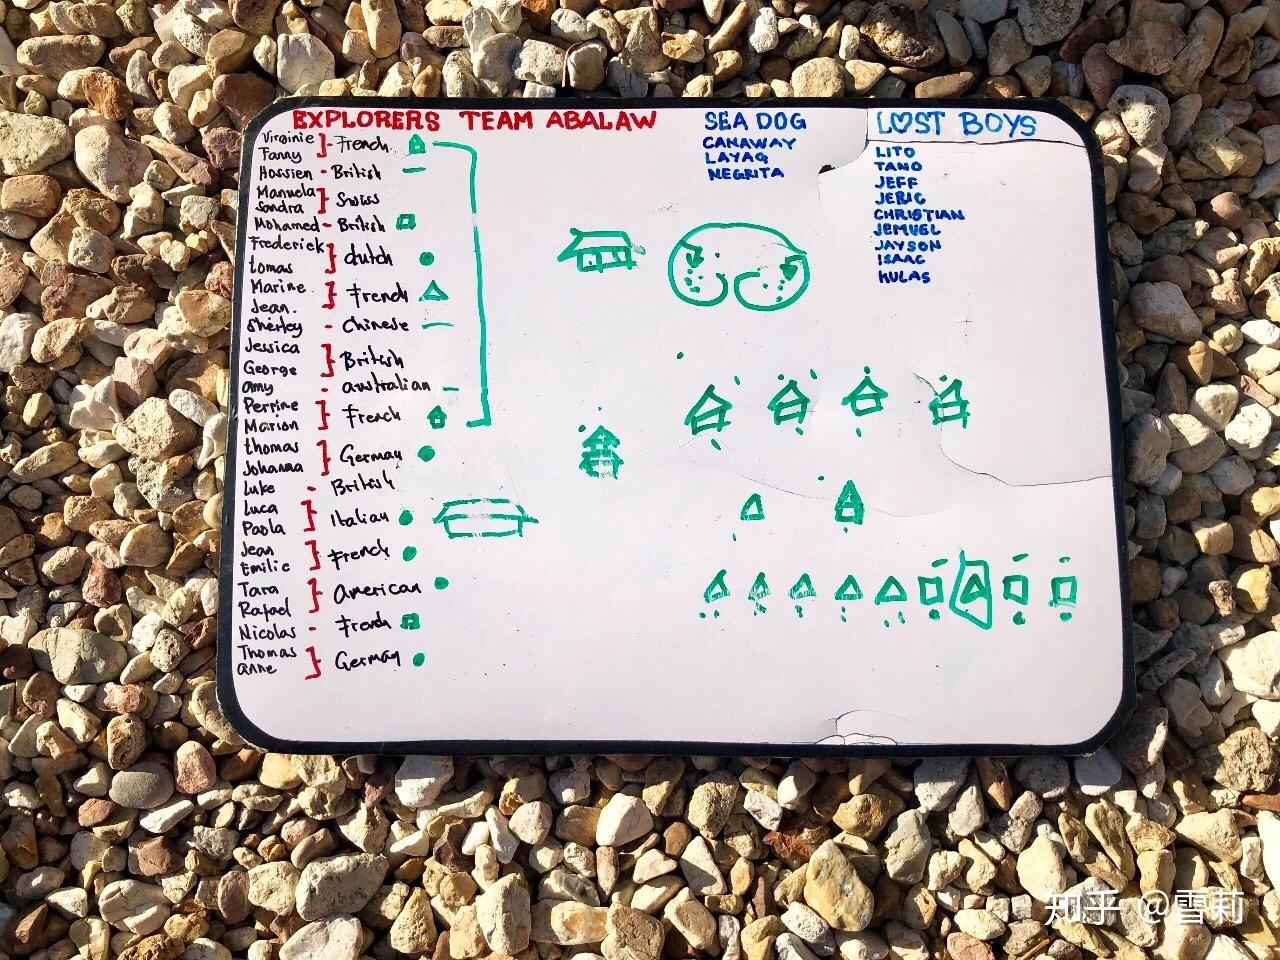 EXPLORERS TEAM ABALAW
Virginie
Fanny
French
Hossien - British
Manuela
Sandra
Swiss
Mohamed - British
Frederick
tomas
dutch
Marine
Jean.
French
Sherley - Chinese
Jessica
George
British
amy - australian
Perrine
Marion
French
thomas
Johanna
German
Luke - British
Luca
Paola
Italian
Jean
Emilie
French
Tara
Rafael
American
Nicolas - French
Thomas
anne
German
SEA DOG
CANAWAY
LAYAG
NEGRITA
LOST BOYS
LITO
TANO
JEFF
JERIC
CHRISTIAN
JEMUEL
JAYSON
ISAAC
KULAS
知乎 @雪莉